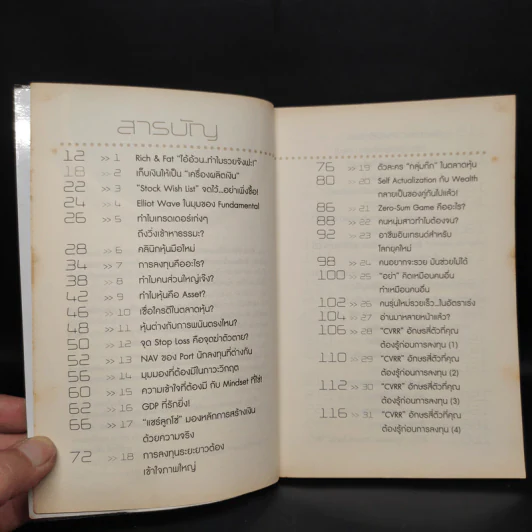 สารบัญ
12 >> 1 Rich & Fat "ไอ้อ้วน..ทำไมรวยจังฟะ!"
18 >> 2 เก็บเงินให้เป็น "เครื่องผลิตเงิน"
22 >> 3 "Stock Wish List" จดไว้...อย่าเพิ่งซื้อ!
24 >> 4 Elliot Wave ในมุมของ Fundamental
26 >> 5 ทำไมเทรดเดอร์เก่งๆ
ถึงวิ่งเข้าหาธรรมะ?
28 >> 6 คลินิกหุ้นมือใหม่
34 >> 7 การลงทุนคืออะไร?
38 >> 8 ทำไมคนส่วนใหญ่เจ๊ง?
42 >> 9 ทำไมหุ้นคือ Asset?
46 >> 10 เชื่อใครดีในตลาดหุ้น?
48 >> 11 หุ้นต่างกับการพนันตรงไหน?
50 >> 12 จุด Stop Loss คือจุดฆ่าตัวตาย?
52 >> 13 NAV ของ Port นักลงทุนที่ต่างกัน
56 >> 14 มุมมองที่ต้องมีในภาวะวิกฤต
60 >> 15 ความเข้าใจที่ต้องมี กับ Mindset ที่ใช่!
62 >> 16 GDP ที่รักยิ่ง!
66 >> 17 "แชร์ลูกโซ่" มองหลักการสร้างเงิน
ด้วยความจริง
72 >> 18 การลงทุนระยะยาวต้อง
เข้าใจภาพใหญ่
76 >> 19 ตัวละคร "กลุ่มกึ๊ก" ในตลาดหุ้น
80 >> 20 Self Actualization กับ Wealth
กลายเป็นของคู่กันไปแล้ว!
86 >> 21 Zero-Sum Game คืออะไร?
88 >> 22 คนหนุ่มสาวทำไมต้องจน?
92 >> 23 อาชีพอินเทรนด์สำหรับ
โลกยุคใหม่
98 >> 24 คนอยากจะรวย มันช่วยไม่ได้
100 >> 25 "อย่า" คิดเหมือนคนอื่น
ทำเหมือนคนอื่น
102 >> 26 คนรุ่นใหม่รวยเร็ว..ในอัตราเร่ง
104 >> 27 อ่านมาหลายหน้าแล้ว?
106 >> 28 "CVRR" อักษรสี่ตัวที่คุณ
ต้องรู้ก่อนการลงทุน (1)
110 >> 29 "CVRR" อักษรสี่ตัวที่คุณ
ต้องรู้ก่อนการลงทุน (2)
112 >> 30 "CVRR" อักษรสี่ตัวที่คุณ
ต้องรู้ก่อนการลงทุน (3)
116 >> 31 "CVRR" อักษรสี่ตัวที่คุณ
ต้องรู้ก่อนการลงทุน (4)